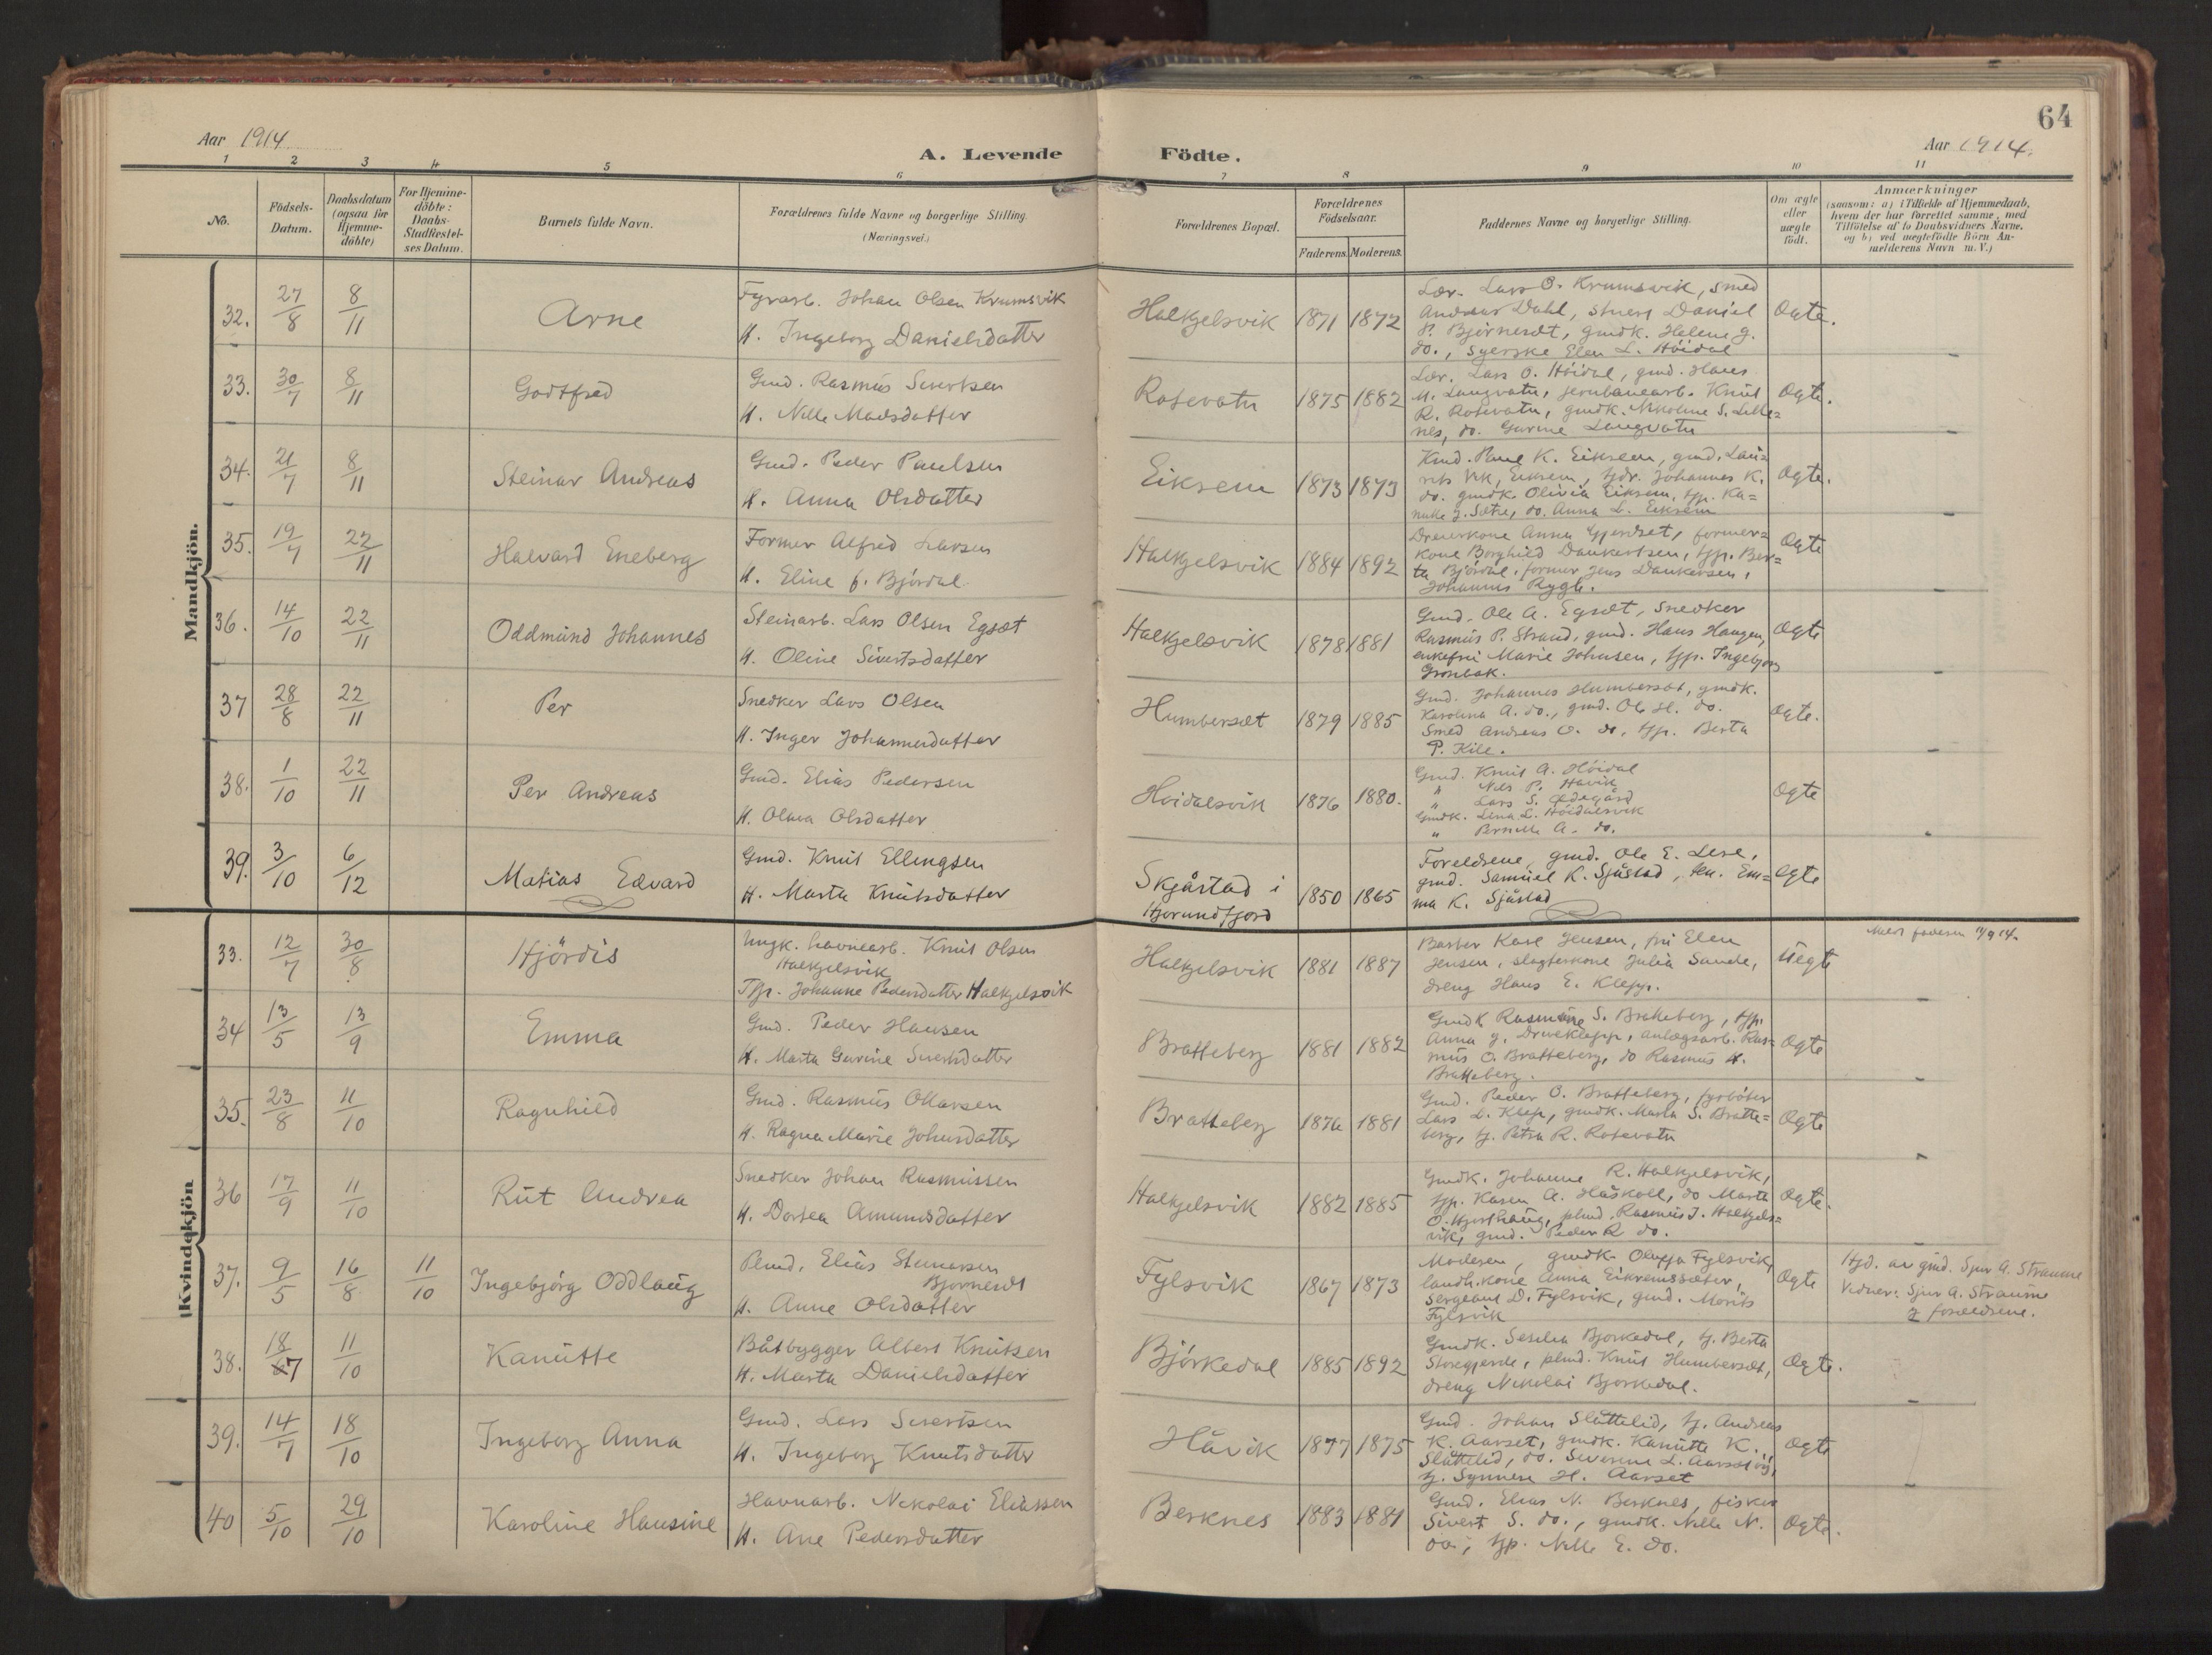 64
Aar 1914
A. Levende Födte.
Aar 1914.
1 2 3 4 5 6 7 8 9 10 11
No.
Födsels-
Datum.
Daabsdatum
(ogsaa for
Hjemme-
döbte)
For Hjemme-
döbte:
Daabs-
Stadfæstel-
ses Datum.
Barnets fulde Navn.
Forældrenes fulde Navne og borgerlige Stilling.
(Næringsvei.)
Forældrenes Bopæl.
Forældrenes
Födselsaar.
Faderens. Moderens.
Faddernes Navne og borgerlige Stilling.
Om ægte
eller
uægte
født.
Anmærkninger
(saasom: a) i Tilfælde af Hjemmedaab,
hvem der har forrettet samme, med
Tilföielse af to Daabsvidners Navne,
og b) ved uægtefödte Börn An-
melderens Navn m. V.)
Mandkjön.
32. 27/8 8/11 Arne
Fyrarb. Johan Olsen Krumsvik
H. Ingeborg Danielsdatter
Halkjelsvik 1871 1872
Lær. Lars O. Krumsvik, smed
Andreas Dahl, Daniel
P. Bjørneset, gmdk. Helene J.
do., syerske Elen L. Höidal
Ogte.
33. 30/7 8/11 Godtfred
Gmd. Rasmus Sivertsen
H. Nelle Madsdatter
Rotevatn 1875 1882
Lær. Lars O. Höidal, gmd. Hans
M. Langvatn, jernbanearb. Knut
R. Rotevatn, gmdk. Nikoline S. Lille=
nes, do. Gurine Langvatn
Ogte.
34. 21/7 8/11 Steinar Andreas
Gmd. Peder Paulsen
H. Anna Olsdatter
Eiksem 1873 1873
Kmd. Paul K. Eiksem, gmd. Lau=
rits Vik, Eiksem, Johannes K.
do. gmdk. Olivia Eiksem, tjp. Ka=
nutte J. Sætre, do. Anna L. Eiksem
Ogte.
35. 19/7 22/11 Halvard Eneberg
Former Alfred Larsen
H. Eline f. Bjørdal
Halkjelsvik 1884 1892
Dreierkone Anna Gjerdset, former=
kone Borghild Dankertsen, tjp. Ber=
ta Bjørdal, former Jens Dankersen,
Johannes Rygh.
Ogte
36. 14/10 22/11 Oddmund Johannes
Steinarb. Lars Olsen Egset
H. Oline Sivertsdatter
Halkjelsvik 1878 1881
Gmd. Ole A. Egset, snedker
Rasmus P. Strand, gmd. Hans Haugen,
enkefru Marie Johnsen, tjp. Ingebjørg
Grønbak.
Ogte
37 28/8 22/11 Per
Snedker Lars Olsen
H. Inger Johannesdatter
Humberset 1879 1885
Gmd. Johannes Humberset, gmdk.
Karolina A. do., gmd. Ole H. do.
Smed Andreas O. do, tjp. Berta
P. Kile.
Ogte.
38. 1/10 22/11 Per Andreas
Gmd. Elias Pedersen
H. Olava Olsdatter
Hoidalsvik 1876 1880.
Gmd. Knut A. Höidal
" Nils P. Håvik
" Lars S. Ødegård
Gmdk. Lina L. Höidalsvik
" Pernille A. do.
Ogte
39. 3/10 6/12 Matias Edvard
Gmd. Knut Ellingsen
H. Marta Knutsdatter
Skjåstad i
Hjorundfjord
1850 1865
Foreldrene, gmd. Ole E. Lese,
gmd. Samuel K. Sjåstad, Em=
ma K. Sjåstad
Ogte
Kvindekjön
33. 12/7 30/8 Hjördis
Ungk. havnearb. Knut Olsen
Halkjelsvik
Tjp. Johanne Pedersdatter Halkjelsvik
Halkjelsvik 1881 1887
Barber Karl Jensen, fru Elen
Jensen, slagterkone Julia Sande,
dreng Hans E. Klepp.
Uegte
Meldt faderen 11/9 14.
34 13/5 13/9 Emma
Gmd. Peder Hansen
H. Marta Gurine Sivertsdatter
Bratteberg 1881 1882
Gmdk Rasmine S. Bratteberg, tjp.
Anna J. Driveklepp, anlægsarb. Ras=
mus O. Bratteberg, do Rasmus H.
Bratteberg.
Ogte
35. 23/8 11/10 Ragnhild
Gmd. Rasmus Ottarsen
H. Ragna Marie Johnsdatter
Bratteberg 1876 1881
Gmd. Peder O. Bratteberg, fyrböter
Lars L. Klep, gmdk. Marta S. Bratte=
berg, tj. Petra R. Rotevatn
Ogte
36 17/9 11/10 Rut Andrea
Snedker Johan Rasmussen
H. Dortea Amundsdatter
Halkjelsvik 1882 1885
Gmdk. Johanne R. Halkjelsvik,
tjp. Karen A. Håskoll, do Marta
O. Mjørthaug, plmd. Rasmus J. Halkjels=
vik, gmd. Peder R do.
Ogte.
37. 9/5 16/8 11/10 Ingebjörg Oddlaug
Plmd. Elias Steinersen
Bjørneset
H. Anne Olsdatter
Fylsvik 1867 1873
Moderen, gmdk. Oluffa Fylsvik,
landh.kone Anna Eikremssæter,
sergeant D. Fylsvik, gmd. Morits
Fylsvik
Ogte
Hjd. av gmd. Sjur A. Straume
Vidner: Sjur A. Straume
g foreldrene.
38. 18/7 11/10 Kanutte
Båtbygger Albert Knutsen
H. Marta Danielsdatter
Björkedal 1885 1892
Gmdk. Sesilia Bjorkedal, tj. Berta
Storegjerde, plmd. Knut Humberset,
dreng Nikolai Bjorkedal.
Ogte.
39. 14/7 18/10 Ingeborg Anna
Gmd. Lars Sivertsen
H. Ingeborg Knutsdatter
Håvik 1877 1875
Gmd. Johan Slåttelid, tj. Andreas
K. Aarset, gmdk. Kanutte K.
Slåttelid, do. Severine L. Aarset,
tj. Synnøve H. Aarset
Ogte
40 5/10 29/10 Karoline Hansine
Havnarb. Nikolai Eliassen
H. Ane Pedersdatter
Berknes 1883 1881
Gmd. Elias N. Berknes, fisker
Sivert S. do., gmdk. Nelle N.
do., tjp. Nelle E. do.
Ogte.